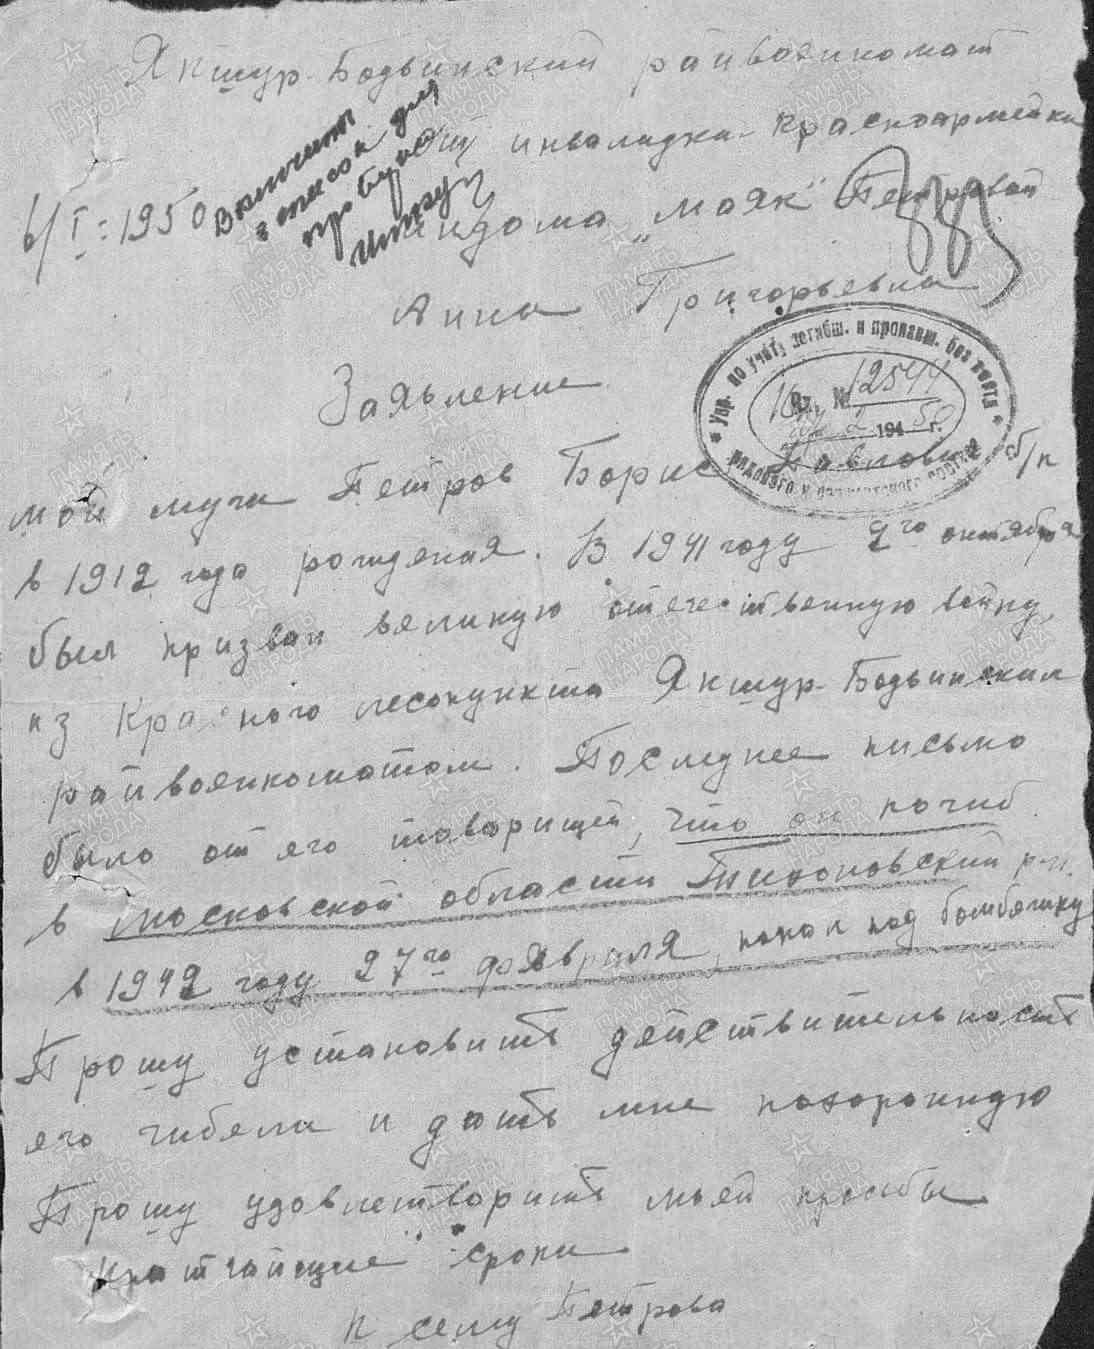 Якшур-Бодьинский райвоенкомат
инвалидки Красноармейки
6/I-1950
индома „маяк" Петровой
Анна Григорьевна
Заявление
Упр. по учёту погибш. и пропавш. без вести
Вх. № 12544
2 1950 г.
рядового и сержантского состава
мой муж Петров Борис Павлович б/п
в 1912 года рождения. В 1941 году 2го октября
был призван великую отечественную войну,
из Красного лесопункта Якшур-Бодьинским
райвоенкоматом. Последнее письмо
было от его товарищей, что он погиб
в московской области р-н.
в 1942 году 27го февраля, попал под бомбёжку
Прошу установить действительность
его гибели и дать мне похоронную
Прошу удовлетворить моей просьбы
кратчайшие сроки
К сему Петрова